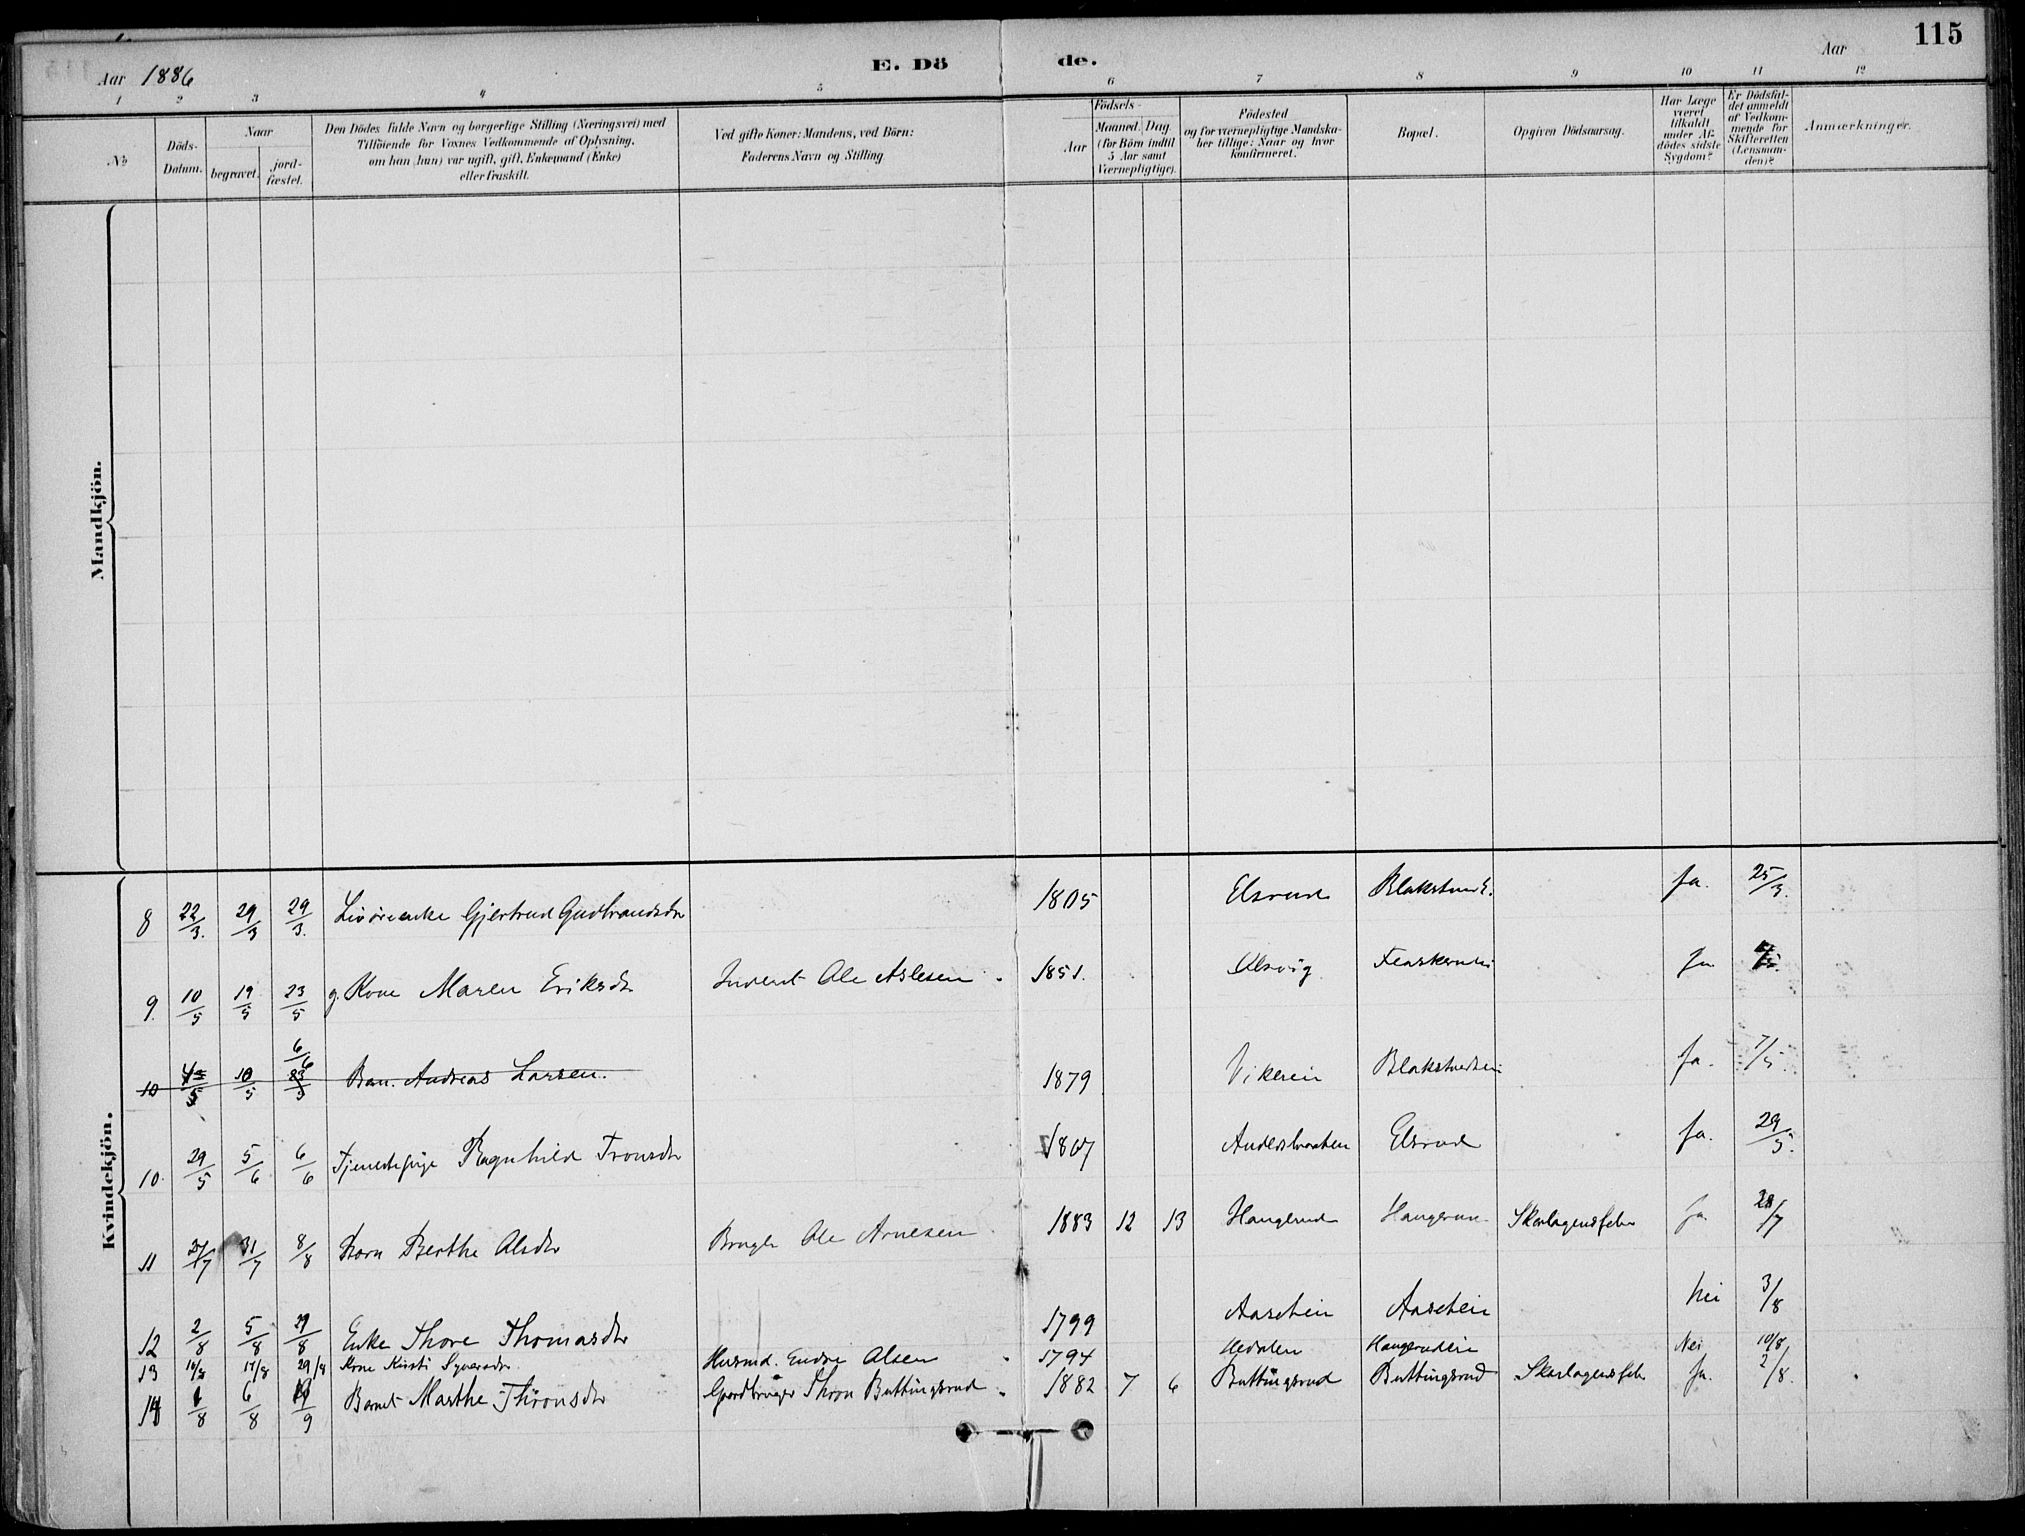 115
Aar 1886
E. Dö de.
Aar
1 2 3 4 5 6 7 8 9 10 11 12
No
Döds-
Datum.
Naar
begravet.
jord-
fæstet.
Den Dödes fulde Navn og borgerlige Stilling (Næringsvei) med
Tilföiende for Voxnes Vedkommende af Oplysning,
om han (hun) var ugift, gift, Enkemand (Enke)
eller fraskilt.
Ved gifte Koner: Mandens, ved Börn:
Faderens Navn og Stilling
Födsels-
Aar
Maaned. Dag.
(for Börn indtil
5 Aar samt
Værnepligtige).
Födested
og for værnepligtige Mandska-
ber tillige: Naar og hvor
konfirmeret.
Bopæl.
Opgiven Dödsaarsag.
Har Læge
været
tilkaldt
under Af-
dödes sidste
Sygdom?
Er Dödsfal-
det anmeldt
af Vedkom-
mende for
Skifteretten
(Lensman-
den)?
Anmærkninger.
Mandkjön.
Kvindekjön.
8 22/3. 29/3 29/3. Gjertrud Gudbrandsdr 1805 Elsrud Ja. 25/3.
9. 10/5 19/5 23/5 g. Kone Maren Eriksdr Inderst Ole Aslesen 1851. Ja
10 /5 10/5 6/6 23/5 Andreas Larsen. 1879 Vikerein Ja. 7/5.
10. 29/5 5/6 6/6 Tjenestepige Ragnhild Tronsdr 1867 Andersbraaten Elsrud Ja. 29/5.
11 27/7 31/7 8/8 Barn Berthe Olsdr Brugr Ole Arnesen 1883 12 13 Haugerud Haugerud Skarlagensfeber Ja 28/7
12 2/8 5/8 29/8 Enke Thore Thomasdr 1799 Aasetein Aasetein Nei 3/8
13 17/8 29/8 Kone Kirsti Syversdr. Husmd. Endre Olsen 1794 Hedalen Haugerudein Nei 10/8
14 1/8 6/8 19/9 Barnet Marthe Thronsdr Gaardbruger Thron Buttingsrud 1882 7 6 Buttingsrud Buttingsrud Skarlagensfeb Ja. 2/8.